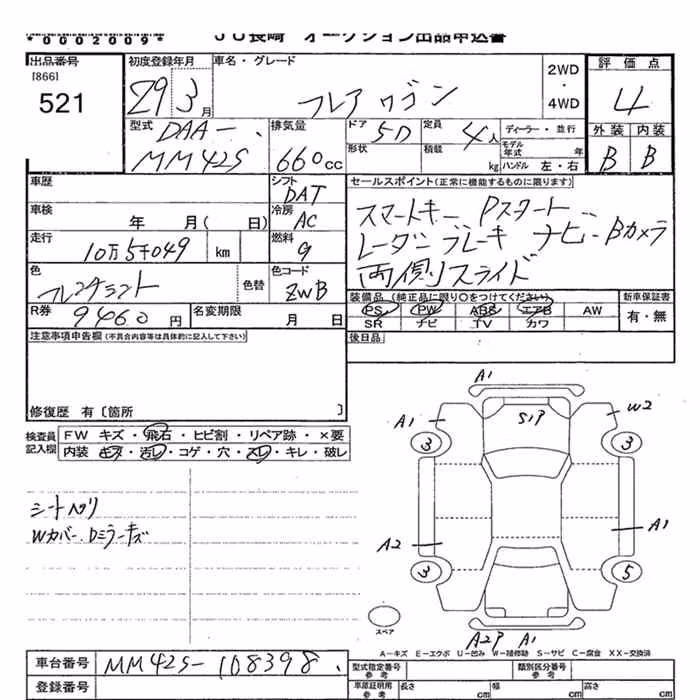 *0002009* JU長崎 オークション出品申込書
出品番号 初度登録年月 車名・グレード 2WD 評価点
[866] ・
521 29 3月 フレアワゴン 4WD 4
型式 DAA- 排気量 ドア 5D 定員 4人 ディーラー・並行 外装 内装
MM42S 660cc 形状 積載 kg モデル年式 年 B B
ハンドル 左・右
車歴 シフト セールスポイント(正常に機能するものに限ります)
DAT スマートキー Pスタート
車検 年 月( 日) 冷房 AC レーダーブレーキ ナビ・Bカメラ
走行 10万5千049 km 燃料 g 両側スライド
色 色替 色コード 装備品(純正品に限り○をつけてください) 新車保証書
ZWB PS PW ABS エアB AW 有・無
R券 9460円 名変期限 月 日 SR ナビ TV カワ
注意事項申告欄(不具合内容等は具体的に記入して下さい) 後日品
修復歴 有〔箇所 〕
検査員記入欄 FW キズ・飛石・ヒビ割・リペア跡・×要
内装 キズ・汚レ・コゲ・穴・スレ・キレ・破レ
シートヘタリ
Wカバー、Dミラーキズ
A1
A1 W2
3 3
A2 A1
3 5
スペア
A2P A1
A-キズ E-エクボ U-凹み W-補修跡 S-サビ C-腐食 XX-交換済
車台番号 MM42S-108398 型式指定番号 参考 類別区分番号 参考
登録番号 車庫証明用 参考 長さ cm 幅 cm 高さ cm